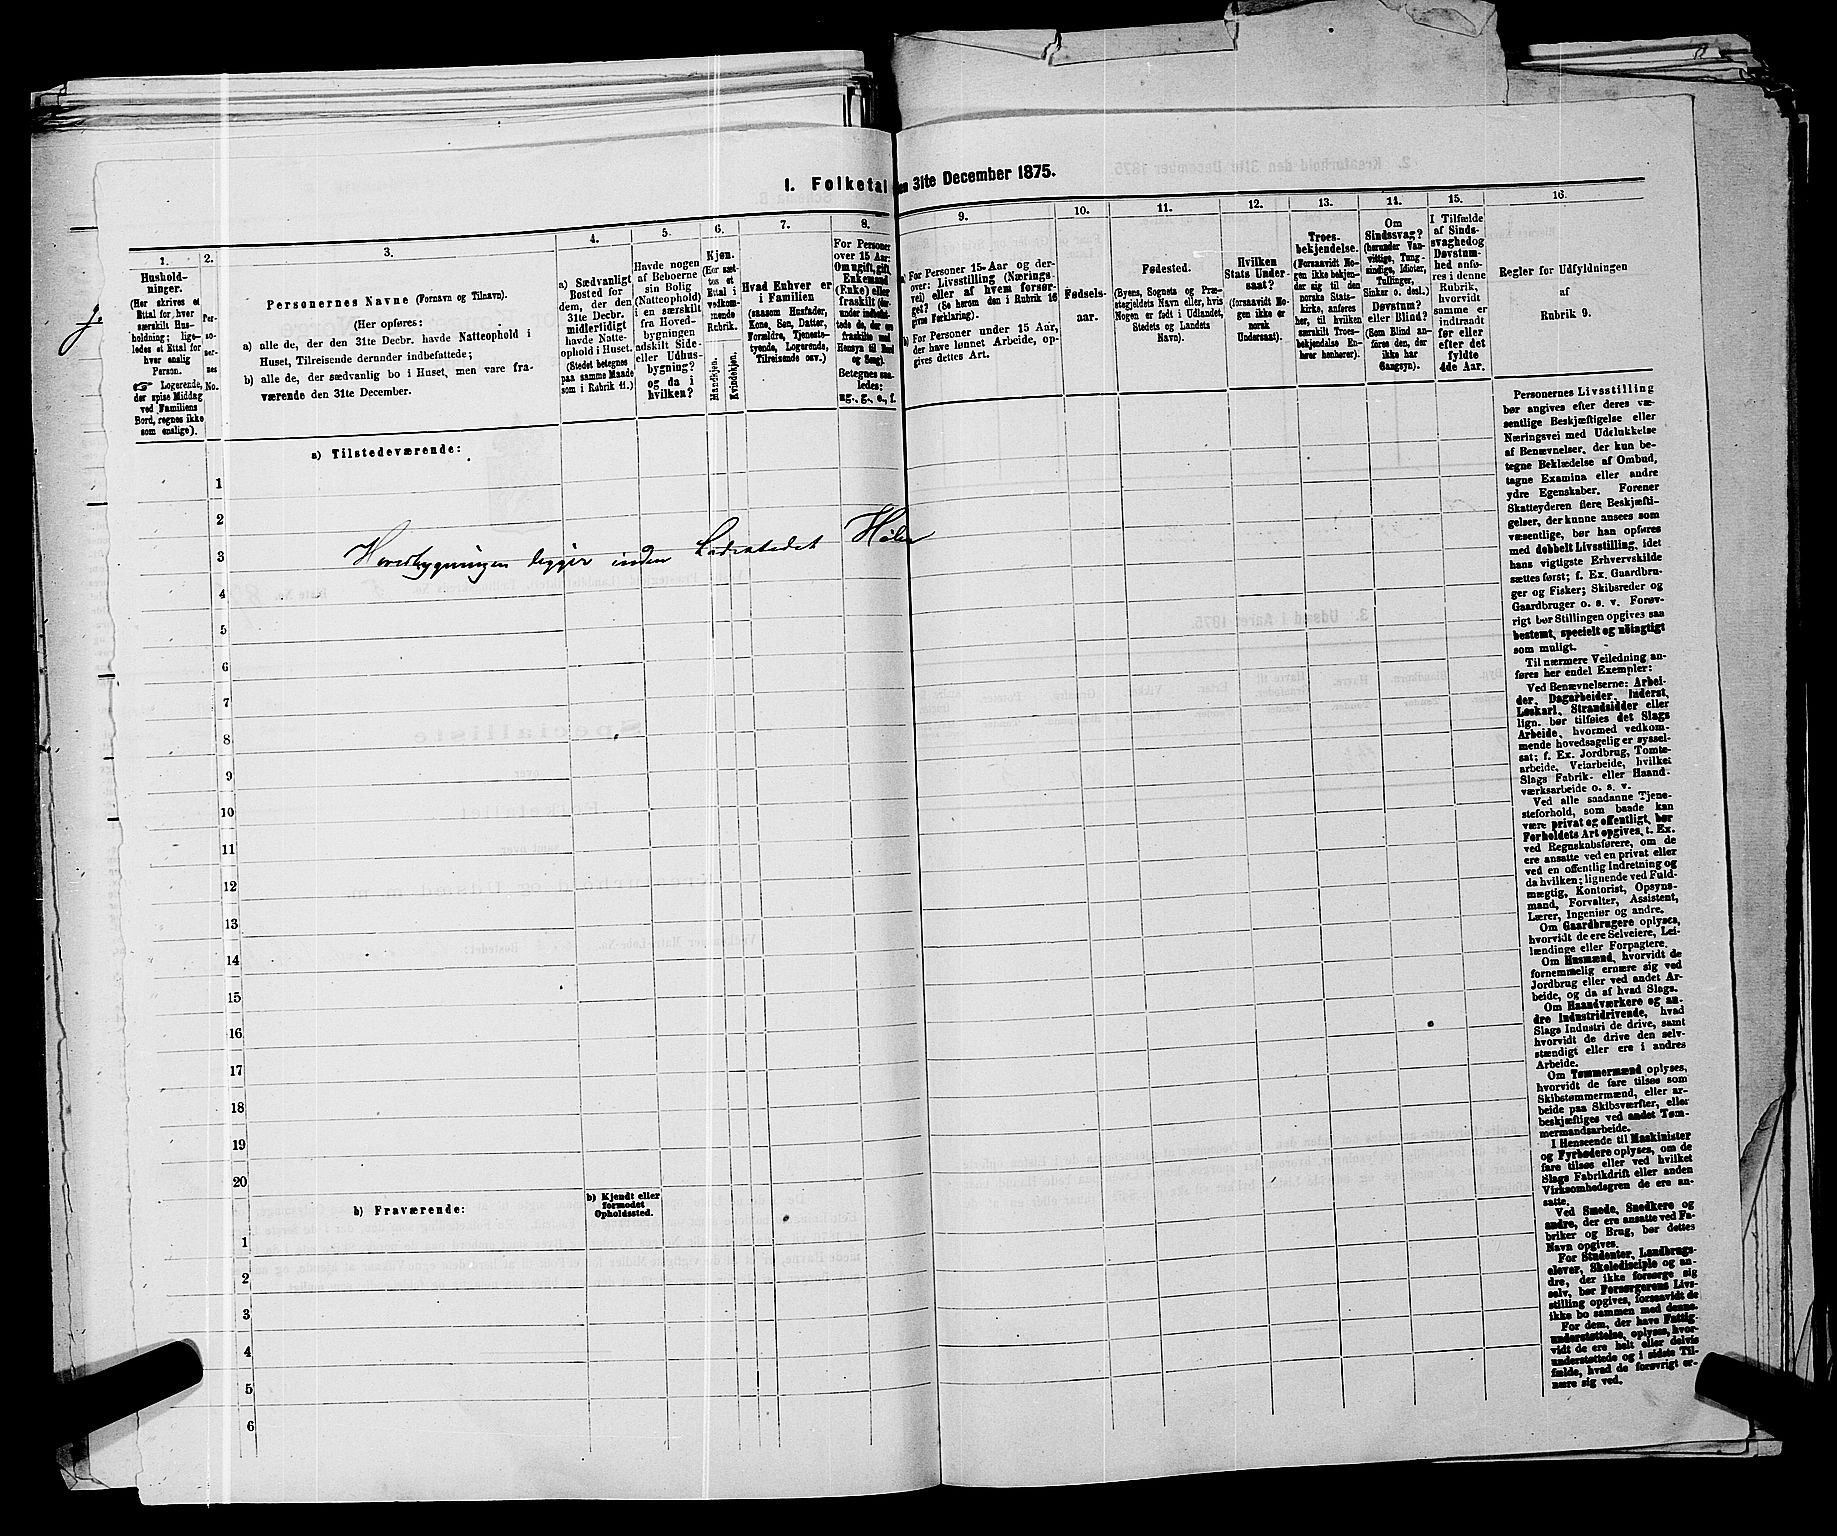 I. Folketal den 31te December 1875.
1.
2.
3.
4.
5.
6.
7.
8.
9.
10.
11.
12.
13.
14.
15.
16.
Hushold-
ninger.
(Her skrives et
Ettal for hver
særskilt Hus-
holdning; lige-
ledes et Ettal for
hver enslig
Person.
☞ Logerende,
der spise Middag
ved Familiens
Bord, regnes ikke
som enslige).
Per-
so-
ner-
nes
No.
Personernes Navne (Fornavn og Tilnavn).
(Her opføres:
a) alle de, der den 31te Decbr. havde Natteophold i
Huset, Tilreisende derunder indbefattede;
b) alle de, der sædvanlig bo i Huset, men vare fra-
værende den 31te December.
a) Sædvanligt
Bosted for
dem, der den
31te Decbr.
midlertidigt
havde Natte-
ophold i Huset.
(Stedet betegnes
paa samme Maade
som i Rubrik 11.)
Havde nogen
af Beboerne
sin Bolig
(Natteophold)
i en særskilt
fra Hoved-
bygningen
adskilt Side-
eller Udhus-
bygning?
og da i
hvilken?
Kjøn.
(Her sæt-
tes et
Ettal i
vedkom-
mende
Rubrik.
Mandkjøn.
Kvindekjøn.
Hvad Enhver er
i Familien
(saasom Husfader,
Kone, Søn, Datter,
Forældre, Tjeneste-
tyende, Logerende,
Tilreisende osv.)
For Personer
over 15 Aar:
Om ugift, gift,
Enkemand
(Enke) eller
fraskilt (der-
under indbefat-
tede de, der ere
fraskilte med
Hensyn til Bord
og Seng).
Betegnes saa-
ledes:
ug., g., e., f.
a) For Personer 15-Aar og der-
over: Livsstilling (Nærings-
vei) eller af hvem forsør-
get? (Se herom den i Rubrik 16
givne Forklaring).
b) For Personer under 15 Aar,
der have lønnet Arbeide, op-
gives dettes Art.
Fødsels-
aar.
Fødested.
(Byens, Sognets og Præ-
stegjeldets Navn eller, hvis
Nogen er født i Udlandet,
Stedets og Landets
Navn).
Hvilken
Stats Under-
saat?
(forsaavidt No-
gen ikke er
norsk
Undersaat).
Troes-
bekjendelse.
(Forsaavidt No-
gen ikke bekjen-
der sig til den
norske Stats-
kirke, anføres
her, til hvilken
særskilt Troes-
bekjendelse En-
hver henhører).
Om
Sindssvag?
(herunder Van-
vittige, Tung-
sindige, Idioter,
Tullinger,
Sinker o. desl.)
Døvstum?
eller Blind?
(Som Blind an-
føres den, der
ikke har
Gangsyn).
I Tilfælde
af Sinds-
svaghed og
Døvstum-
hed anfø-
res i denne
Rubrik,
hvorvidt
samme er
indtraadt
før eller
efter det
fyldte
4de Aar.
Regler for Udfyldningen
af
Rubrik 9.
a) Tilstedeværende:
1
2
3 Hovedbygningen ligger inden Ladestedet Hølen
4
5
6
7
8
9
10
11
12
13
14
15
16
17
18
19
20
b) Fraværende:
b) Kjendt eller
formodet
Opholdssted.
1
2
3
4
5
6
Personernes Livsstilling
bør angives efter deres væ-
sentlige Beskjæftigelse eller
Næringsvei med Udelukkelse
af Benævnelser, der kun be-
tegne Beklædelse af Ombud,
tagne Examina eller andre
ydre Egenskaber. Forener
Skatteyderen flere Beskjæfti-
gelser, der kunne ansees som
væsentlige, bør han opføres
med dobbelt Livsstilling, idet
hans vigtigste Erhvervskilde
sættes først; f. Ex. Gaardbru-
ger og Fisker; Skibsreder og
Gaardbruger o. s. v. Forøv-
rigt bør Stillingen opgives saa
bestemt, specielt og nöiagtigt
som muligt.
Til nærmere Veiledning an-
føres her endel Exempler:
Ved Benævnelserne: Arbei-
der, Dagarbeider, Inderst,
Løskarl, Strandsidder eller
lign. bør tilføies det Slags
Arbeide, hvormed vedkom-
mende hovedsagelig er syssel-
sat; f. Ex. Jordbrug, Tomte-
arbeide, Veiarbeide, hvilket
Slags Fabrik- eller Haand-
værksarbeide o. s. v.
Ved alle saadanne Tjene-
steforhold, som baade kan
være privat og offentligt, bør
Forholdets Art opgives, t. Ex.
ved Regnskabsførere, om de
ere ansatte ved en privat eller
ved en offentlig Indretning og
da hvilken; lignende ved Fuld-
mægtig, Kontorist, Opsyns-
mand, Forvalter, Assistent,
Lærer, Ingeniør og andre.
Om Gaardbrugere oplyses,
hvorvidt de ere Selveiere, Lei-
lændinge eller Forpagtere.
Om Husmænd, hvorvidt de
fornemmelig ernære sig ved
Jordbrug eller ved andet Ar-
beide, og da af hvad Slags.
Om Haandværkere og an-
dre Industridrivende, hvad
Slags Industri de drive, samt
hvorvidt de drive den selv-
stændigt eller ere i andres
Arbeide.
Om Tømmermænd oplyses,
hvorvidt de fare tilsøs som
Skibstømmermænd, eller ar-
beide paa Skibsværfter, eller
beskjæftiges ved andet Tøm-
mermandsarbeide.
I Henseende til Maskinister
og Fyrbødere oplyses, om de
fare tilsøs eller ved hvilket
Slags Fabrikdrift eller anden
Virksomhedsgren de ere an-
satte.
Ved Smede, Snedkere og
andre, der ere ansatte ved Fa-
briker og Brug, bør dettes
Navn opgives.
For Studenter, Landbrugs-
elever, Skoledisciple og an-
dre, der ikke forsørge sig
selv, bør Forsørgerens Livs-
stilling opgives, forsaavidt de
ikke bo sammen med denne.
For dem, der have Fattig-
understøttelse, oplyses, hvor-
vidt de ere helt eller delvis
understøttede og i sidste Til-
fælde, hvad de forøvrigt er-
nære sig ved.